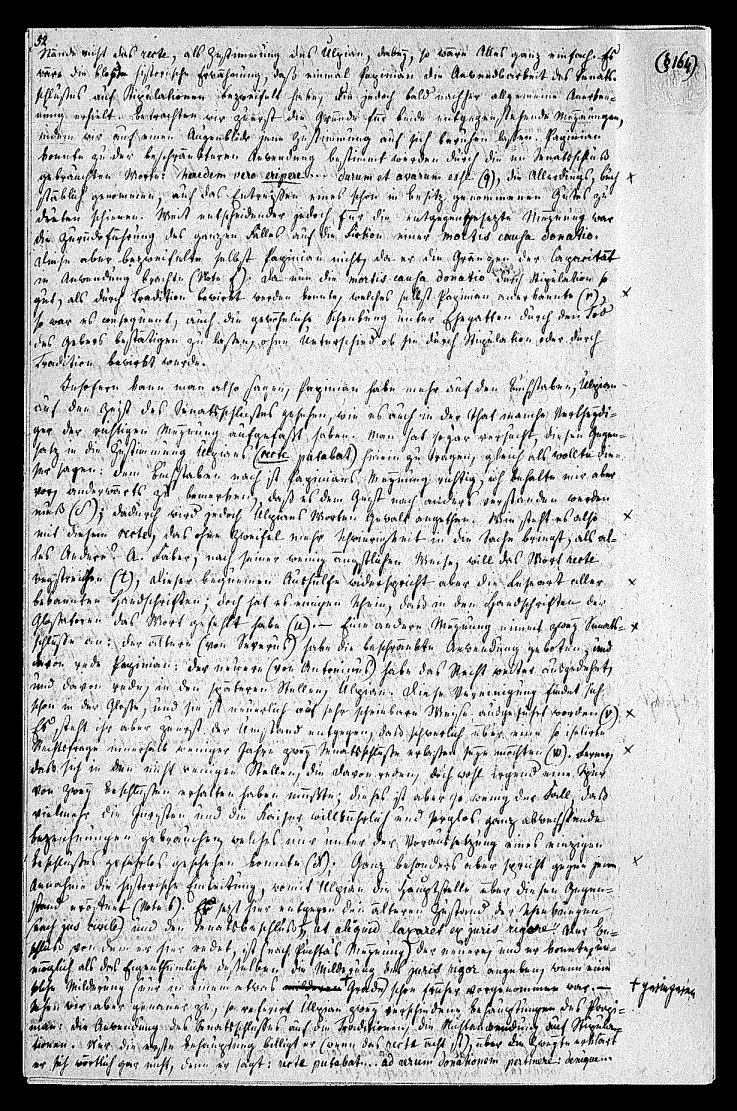 52.
Stände nicht das recte, als Zustimmung des Ulpian, dabey, so wäre Alles ganz einfach. Es
wäre die bloße historische Erwähnung, daß einmal Papinian die Anwendbarkeit des Senats-
schlusses auf Stipulationen bezweifelt habe, die jedoch bald nachher allgemeine Anerken-
nung erhielt. Betrachten wir zuerst die Gründe für beide entgegenstehende Meynungen,
indem wir auf einen Augenblick jene Zustimmung auf sich beruhen lassen. Papinian
konnte zu der beschränkteren Anwendung bestimmt werden durch die im Senatsschluß
gebrauchten Worte: heredem vero eripere ... durum et avarum esse (q), die allerdings, buch-
stäblich genommen, auf das Entreißen eines schon in Besitz genommenen Gutes zu
deuten schienen. Weit entscheidender jedoch für die entgegengesetzte Meynung war
die Zurückführung des ganzen Falles auf die Fiction einer mortis causa donatio.
Diese aber bezweifelte selbst Papinian nicht, da er die Gränzen der Capacität
in Anwendung brachte (Note f). Da nun die mortis causa donatio durch Stipulation so
gut, als durch Tradition bewirkt werden konnte, welches selbst Papinian anerkannte (r),
so war es consequent, auch die gewöhnliche Schenkung unter Ehegatten durch den Tod
des Gebers bestätigen zu lassen, ohne Unterschied ob sie durch Stipulation oder durch
Tradition bewirkt wurde.
Insofern kann man also sagen, Papinian habe mehr auf den Buchstaben, Ulpian
auf den Geist des Senatsschlusses gesehen, wie es auch in der That manche Vertheydi-
ger der richtigen Meynung aufgefaßt haben. Man hat sogar versucht, diesen Gegen-
satz in die Zustimmung Ulpians (recte putabat) hinein zu tragen, gleich als wollte die-
ser sagen: dem Buchstaben nach ist Papinians Meynung richtig, ich behalte mir aber
vor, anderwärts zu bemerken, daß es dem Geist nach anders verstanden werden
muß (s); dadurch wird jedoch Ulpians Worten Gewalt angethan. Wie steht es also
mit diesem recte, das ohne Zweifel mehr Schwierigkeit in die Sache bringt, als al-
les Andere? A. Faber, nach seiner wenig ängstlichen Weise, will das Wort recte
wegstreichen (t), dieser bequemen Aushülfe widerspricht aber die Lesart aller
bekannten Handschriften; doch hat es einigen Schein, daß in den Handschriften der
Glossatoren das Wort gefehlt habe (u). — Eine andere Meynung nimmt zwey Senats-
schlüsse an: der ältere (von Severus) habe die beschränkte Anwendung geboten, und
davon rede Papinian: der neuere (von Antoninus) habe das Recht weiter ausgedehnt,
und davon rede, in den späteren Stellen, Ulpian. Diese Vereinigung findet sich
schon in der Glosse, und sie ist neuerlich auf sehr scheinbare Weise ausgeführt worden (v).
Es steht ihr aber zuerst der Umstand entgegen, daß schwerlich über eine so isolirte
Rechtsfrage innerhalb weniger Jahre zwey Senatsschlüsse erlassen seyn möchten (w). Ferner,
daß sich in den nicht wenigen Stellen, die davon reden, doch wohl irgend eine Spur
von zwey Beschlüssen erhalten haben müßte; dieses ist aber so wenig der Fall, daß
vielmehr die Juristen und die Kaiser willkührlich und sorglos ganz abwechselnde
Bezeichnungen gebrauchen, welches nur unter der Voraussetzung eines einzigen
Beschlusses gefahrlos geschehen konnte (x). Ganz besonders aber spricht gegen jene
Annahme die historische Einleitung, womit Ulpian die Hauptstelle über diesen Gegen-
stand eröffnet (Note b). Er setzt hier entgegen den älteren Zustand der Schenkungen
(nach jus civile) und den Senatsbeschluß, ut aliquid laxaret ex juris rigore. Der Be-
schluß von dem er hier redet, ist (nach Puchta's Meynung) der neuere, und er konnte un-
möglich als das Eigenthümliche desselben die Milderung des juris rigor angeben, wenn eine
solche Milderung (nur in einem etwas + Grade) schon früher vorgenommen war. —
Sehen wir aber genauer zu, so referirt Ulpian zwey verschiedene Behauptungen des Papi-
nian: die Anwendung des Senatsschlusses auf die Traditionen, die Nichtanwendung auf Stipula-
tionen. Nur die erste Behauptung billigt er (wenn das recte ächt ist), über die zweyte erklärt
er sich wörtlich gar nicht, denn er sagt: recte putabat ... ad rerum donationem pertinere: denique ...
(§ 164)
+ geringeren